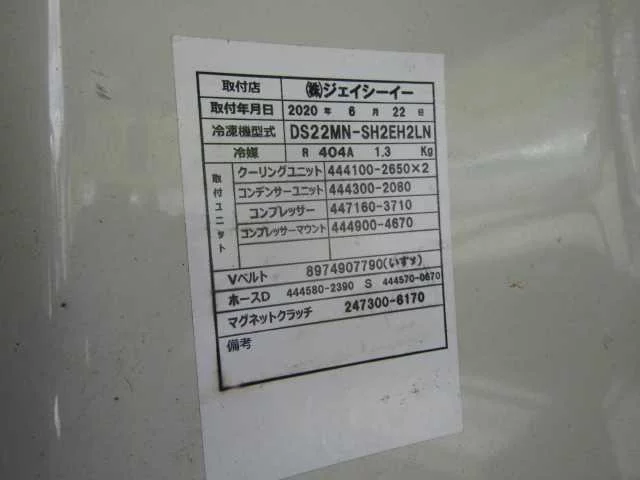 取付店 ㈱ジェイシーイー
取付年月日 2020 年 6 月 22 日
冷凍機型式 DS22MN-SH2EH2LN
冷媒 R 404A 1.3 Kg
取付ユニット
クーリングユニット 444100-2650×2
コンデンサーユニット 444300-2080
コンプレッサー 447160-3710
コンプレッサーマウント 444900-4670
Vベルト 8974907790(いすゞ)
ホースD 444580-2390 S 444570-0670
マグネットクラッチ 247300-6170
備考